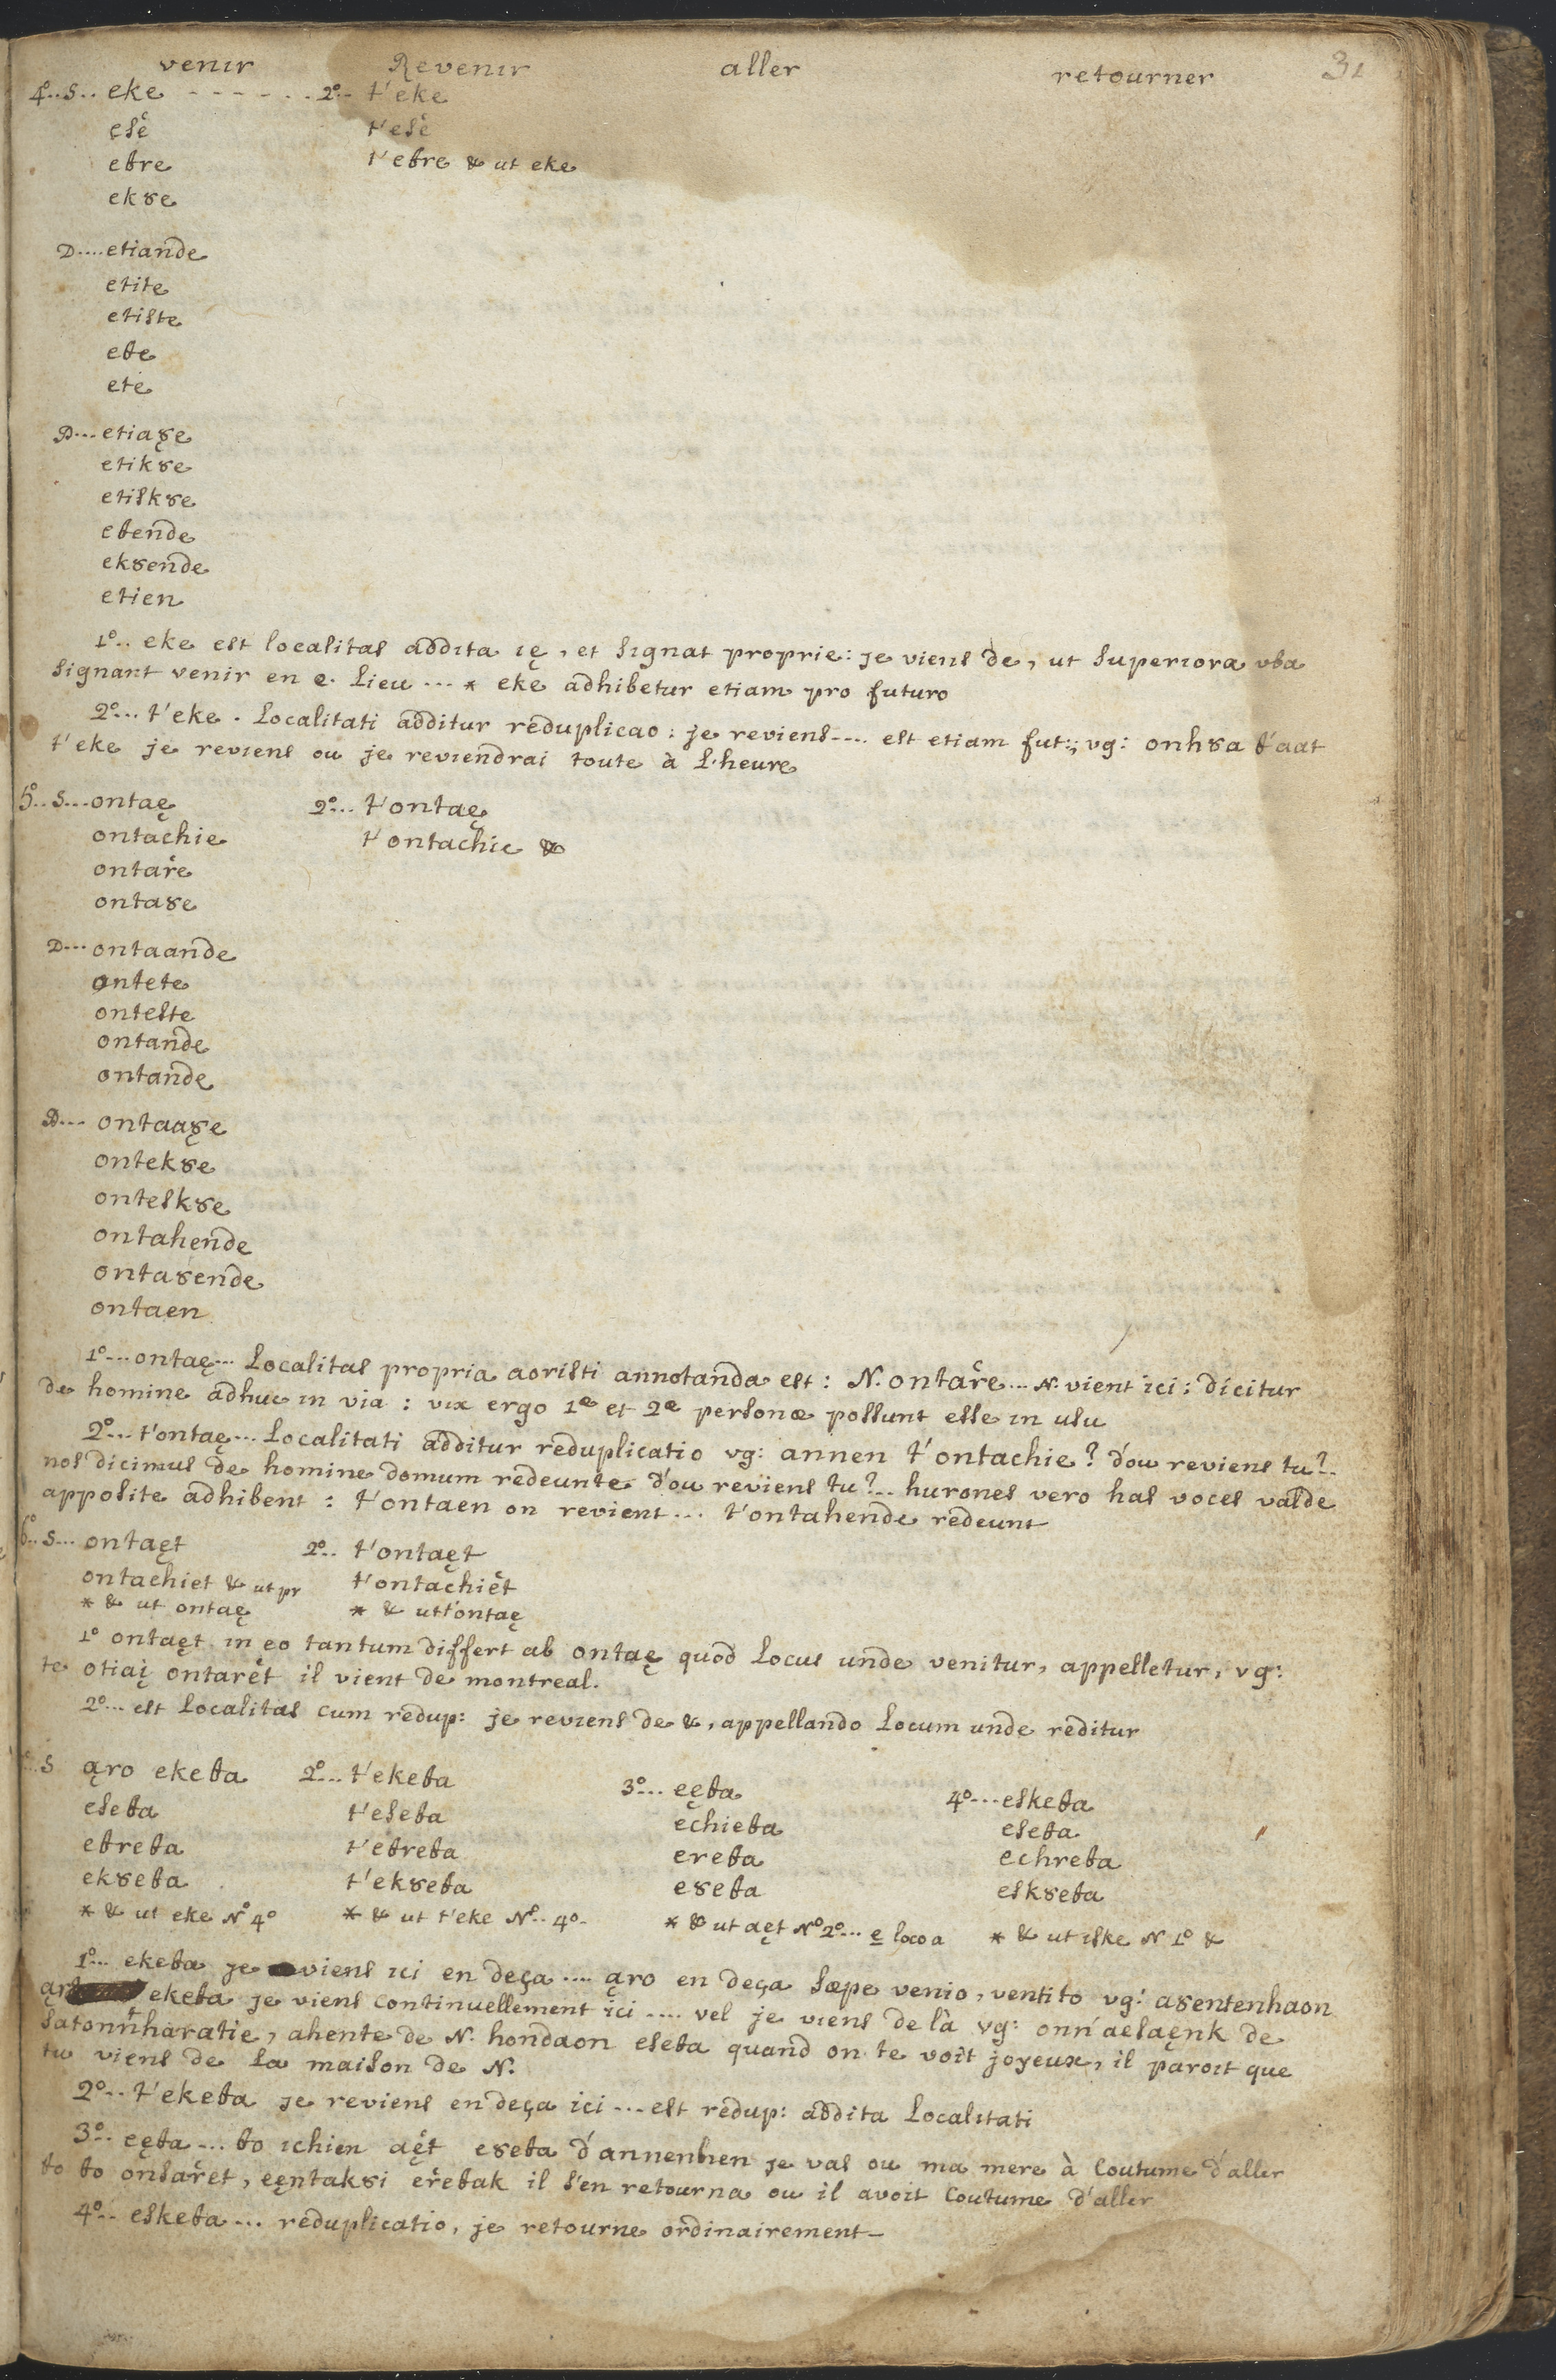 venir Revenir aller retourner 31
4°..S.. eke - - - - - . . 2°.. t'eke
ęsé t'esé
eθre t'eθre & ut eke
ekȣe
D....etiande
etite
etiste
eθe
ete
D...etiaȣ̨e
etikȣe
etiskȣe
eθende
ekȣende
etien
1°.. eke est localitas addita ię, et signat proprie: je viens de, ut superiora vba
signant venir en e. lieu ... * eke adhibetur etiam pro futuro
2°... t'eke. Localitati additur reduplicao: je reviens.... est etiam fut:; vg: onhȣa t'aat
t'eke je reviens ou je reviendrai toute à l'heure
5°..S...ontaę 2°... t'ontaę
ontachie t'ontachie &
ontare
ontaȣe
D...ontaande
ontete
onteste
ontande
ontande
D... ontaaȣ̨e
ontekȣe
onteskȣe
ontahende
ontaȣende
ontaen
1°...ontaę... Localitas propria aoristi annotanda est: N. ontare... N. vient ici: dicitur
de homine adhuc in via: vix ergo 1æ et 2æ personæ possunt esse in usu
2°... t'ontaę... Localitati additur reduplicatio vg: annen t'ontachie? d'ou reviens tu?..
nos dicimus de homine domum redeunte d'ou reviens tu?.. hurones vero has voces valde
apposite adhibent: t'ontaen on revient... t'ontahende redeunt
6°..S... ontaęt 2°.. t'ontaęt
ontachiet & ut pr t'ontachiet
* & ut ontaę * & ut t'ontaę
1° ontaęt in eo tantum differt ab ontaę quod locus unde venitur, appelletur, vg:
te otiai̧ ontarét il vient de montreal.
2°... est Localitas cum redup: je reviens de &, appellando locum unde reditur
S ąro ekeθa 2°... t'ekeθa 3°... eęθa 4°...eskeθa
eseθa t'eseθa echieθa eseθa
eθreθa t'eθreθa ereθa echreθa
ekȣeθa t'ekȣeθa eȣeθa eskȣeθa
* & ut eke N° 4° * & ut t'eke N°.. 4°. * & ut aęt N° 2°... e loco a * & ut iske N 1° &
1°... ekeθa je viens ici en deça .... ąro en deça sæpe venio, ventito vg: aȣentenhaon
ekeθa je viens continuellement ici .... vel je viens de là vg: onn'aesaęnk de
satonnharatie, ahente de N. hondaon eseθa quand on te voit joyeux, il paroit que
tu viens de la maison de N.
2°.. t'ekeθa je reviens en deça ici ... est redup: addita Localitati
3°.. eęθa ... θo ichien aęt eȣeθa d'annenhen je vas ou ma mere à coutume d'aller
θo θo onsarét, eęntakȣi ereθak il s'en retourna ou il avoit coutume d'aller
4°.. eskeθa ... reduplicatio, je retourne ordinairement